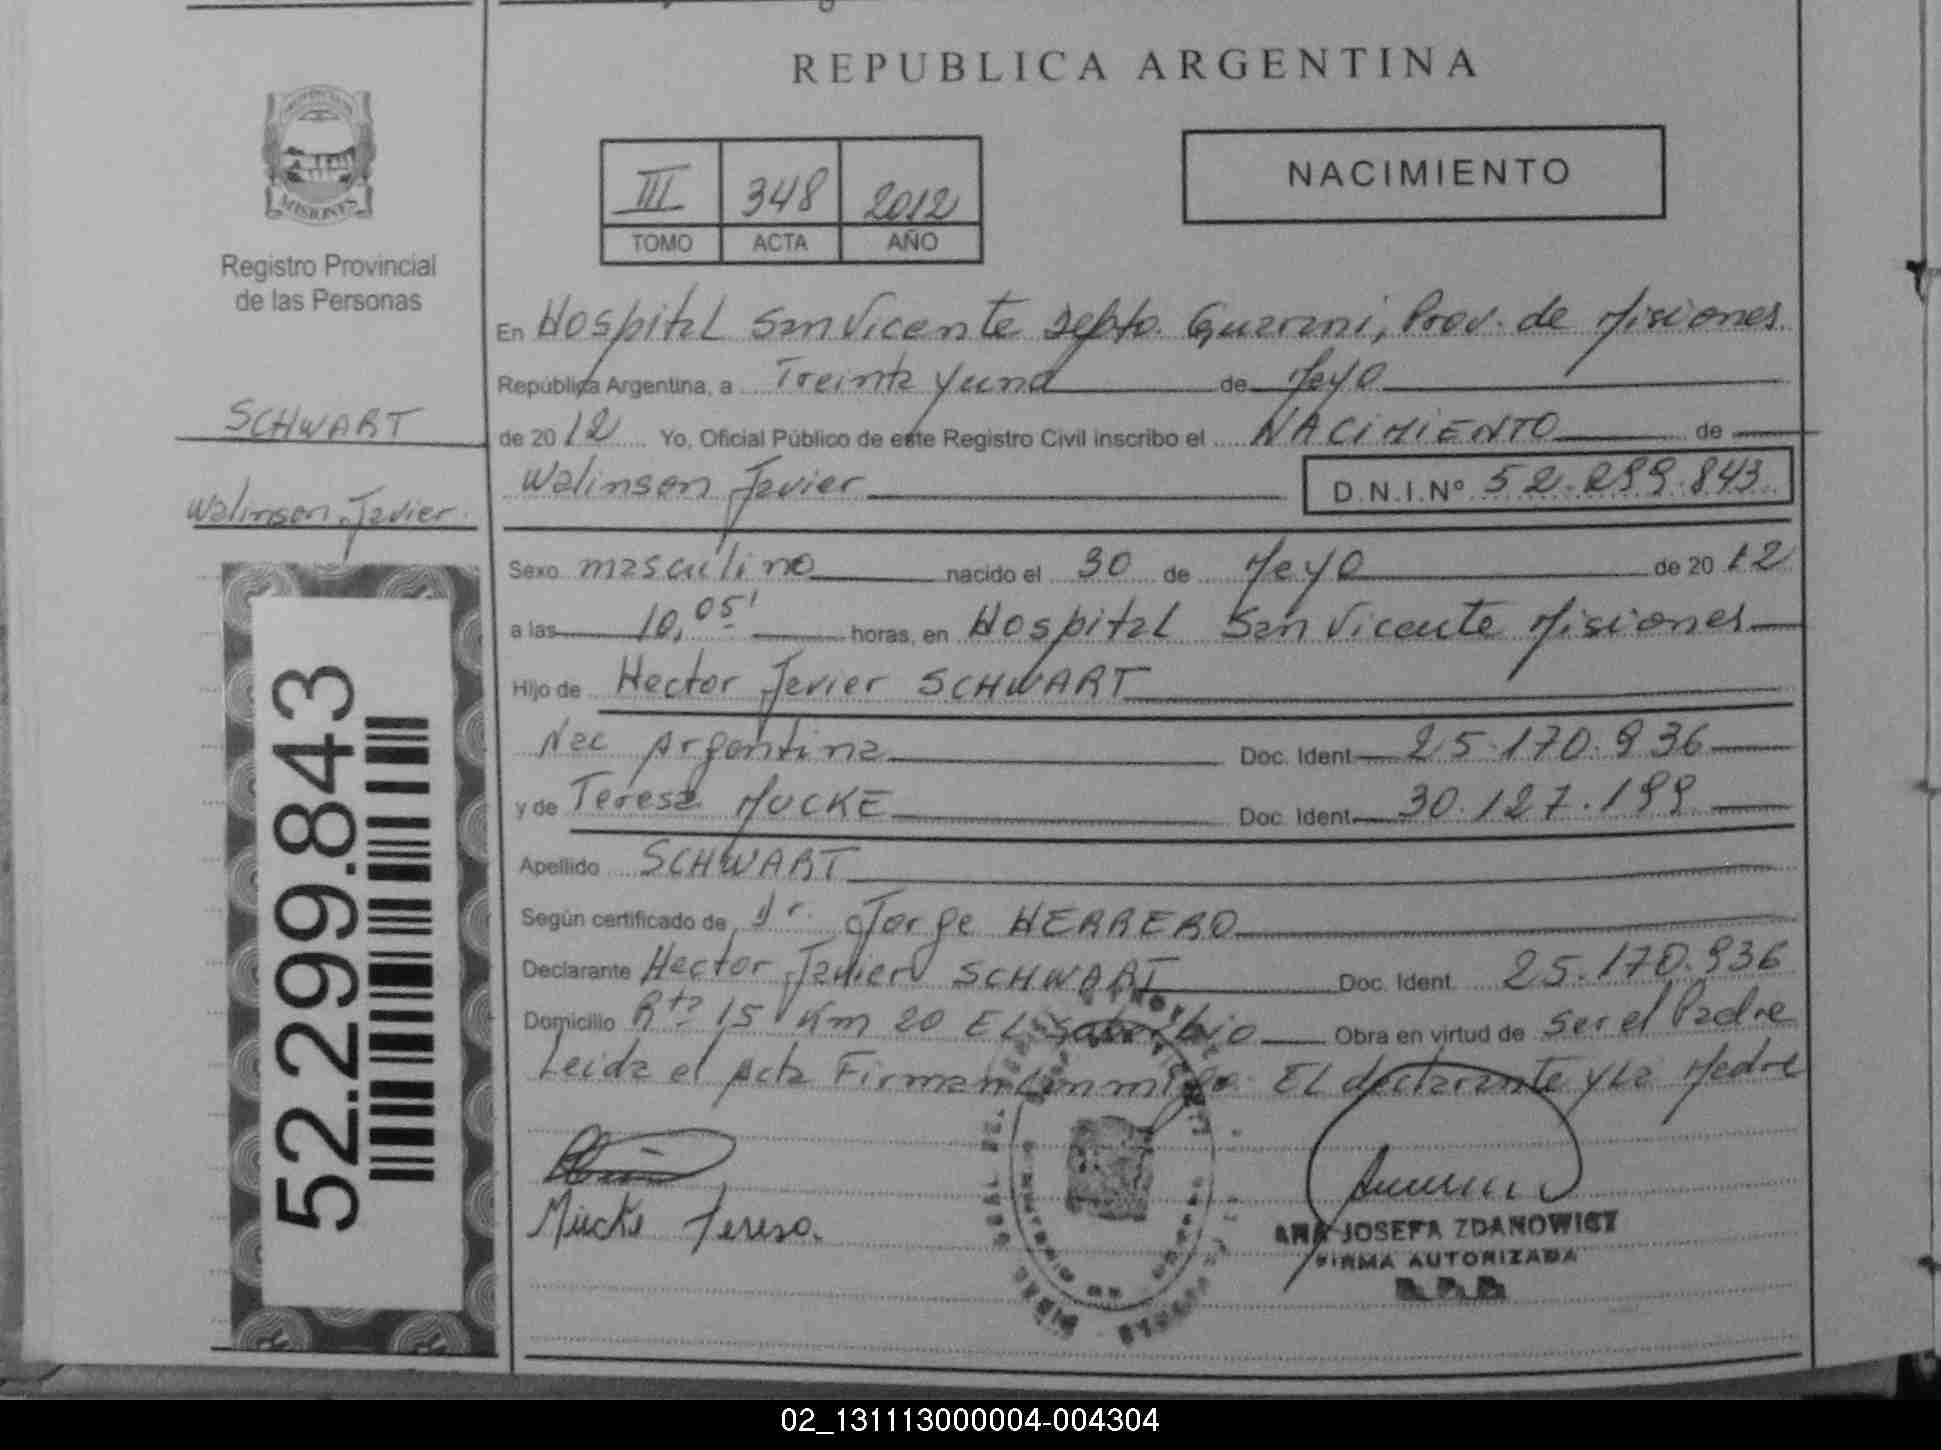 REPUBLICA ARGENTINA
MISIONES
Registro Provincial
de las Personas
III 348 2012
TOMO ACTA AÑO
NACIMIENTO
SCHWART
Walinson Javier
52.299.843
En Hospital San Vicente Depto. Guarani, Prov. de Misiones
República Argentina, a Treinta y uno de Mayo
de 2012 Yo, Oficial Público de este Registro Civil inscribo el NACIMIENTO de
Walinson Javier D.N.I.Nº 52.299.843
Sexo masculino nacido el 30 de Mayo de 2012
a las 10,05' horas, en Hospital San Vicente Misiones
Hijo de Hector Javier SCHWART
Nac Argentina Doc. Ident 25.170.936
y de Teresa MUCKE Doc. Ident. 30.127.199
Apellido SCHWART
Según certificado de Dr. Jorge HERRERO
Declarante Hector Javier SCHWART Doc. Ident. 25.170.936
Domicilio Rta 15 Km 20 EL Soberbio Obra en virtud de ser el Padre
Leida el Acta Firman conmigo EL declarante y La Madre
Mücke Teresa.
ANA JOSEFA ZDANOWICZ
FIRMA AUTORIZADA
02_131113000004-004304